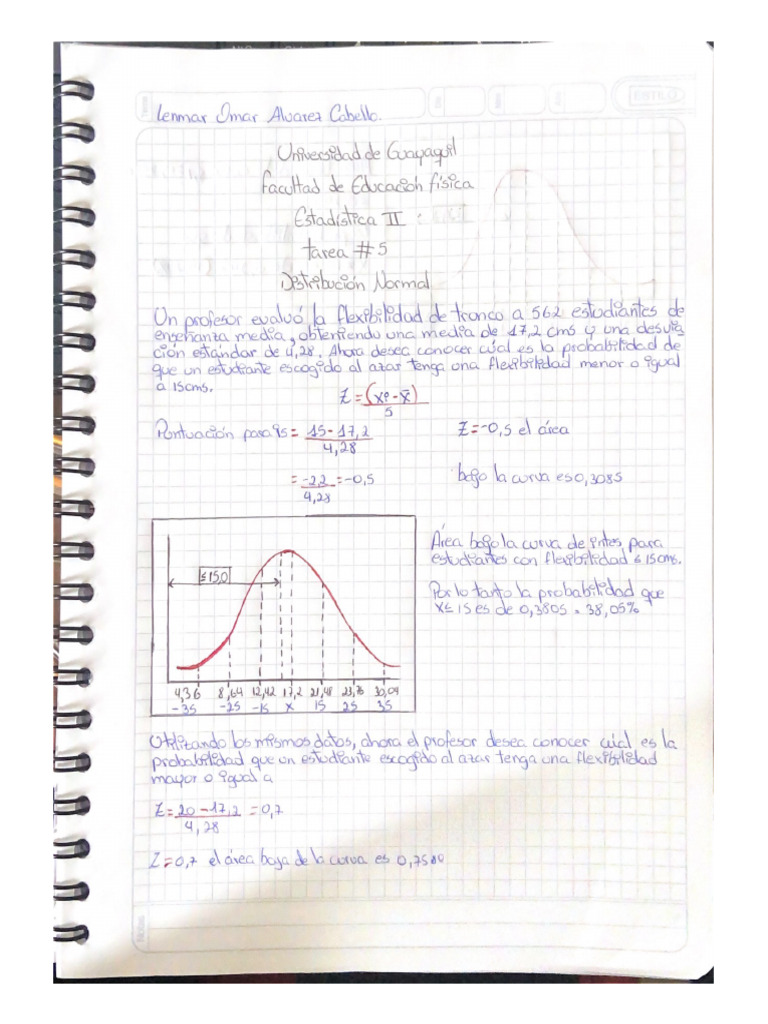 Lenmar Omar Alvarez Cabello.
Universidad de Guayaquil
Facultad de Educación física
Estadística II
tarea #5
Distribución Normal
Un profesor evaluó la flexibilidad de tronco a 562 estudiantes de
enseñanza media, obteniendo una media de 17,2 cms y una desvia
ción estándar de 4,28. Ahora desea conocer cúal es la probabilidad de
que un estudiante escogido al azar tenga una flexibilidad menor o igual
a 15cms.
Z = (xº - x̄)
5
Puntuación para 15 = 15 - 17,2
4,28
Z = -0,5 el área
= -2,2 = -0,5
4,28
bajo la curva es 0,3085
Área bajo la curva de intes para
estudiantes con flexibilidad ≤ 15cms.
Por lo tanto la probabilidad que
x ≤ 15 es de 0,3805 = 38,05%
≤ 15,0
4,36 8,64 12,42 17,2 21,48 23,76 30,04
-3s -2s -1s x 1s 2s 3s
Utilizando los mismos datos, ahora el profesor desea conocer cúal es la
probabilidad que un estudiante escogido al azar tenga una flexibilidad
mayor o igual a
Z = 20 - 17,2 = 0,7
4,28
Z = 0,7 el área baja de la curva es 0,7580